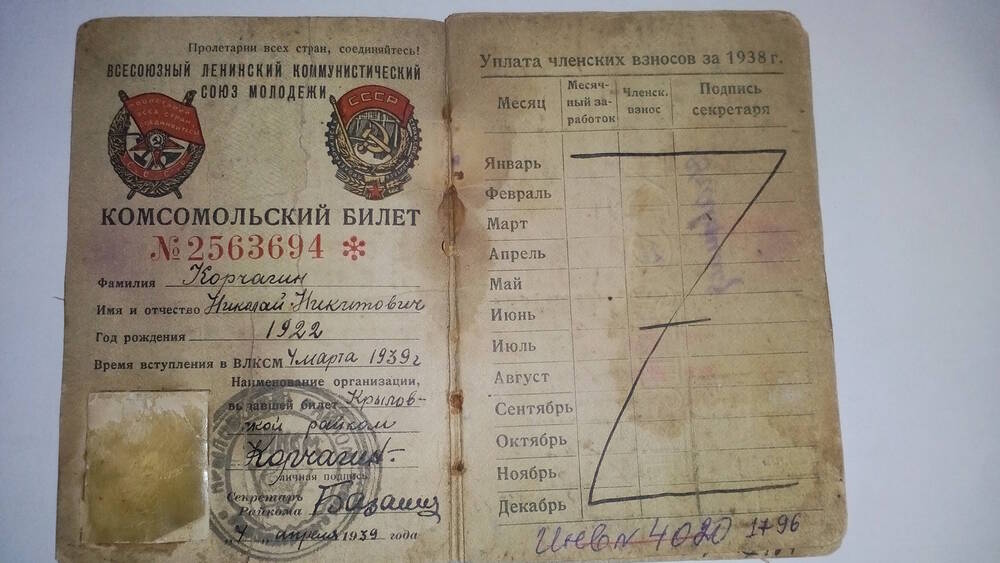 Пролетарии всех стран, соединяйтесь!
ВСЕСОЮЗНЫЙ ЛЕНИНСКИЙ КОММУНИСТИЧЕСКИЙ
СОЮЗ МОЛОДЕЖИ
СССР
КОМСОМОЛЬСКИЙ БИЛЕТ
№ 2563694 *
Фамилия Корчагин
Имя и отчество Николай Никитович
Год рождения 1922
Время вступления в ВЛКСМ 4 марта 1939 г
Наименование организации,
выдавшей билет Крылов-
ской райком
Корчагин
личная подпись
Секретарь
Райкома
"4" апреля 1939 года
Уплата членских взносов за 1938 г.
Месяц
Месяч-
ный за-
работок
Членск.
взнос
Подпись
секретаря
Январь
Февраль
Март
Апрель
Май
Июнь
Июль
Август
Сентябрь
Октябрь
Ноябрь
Декабрь
Инв № 4020